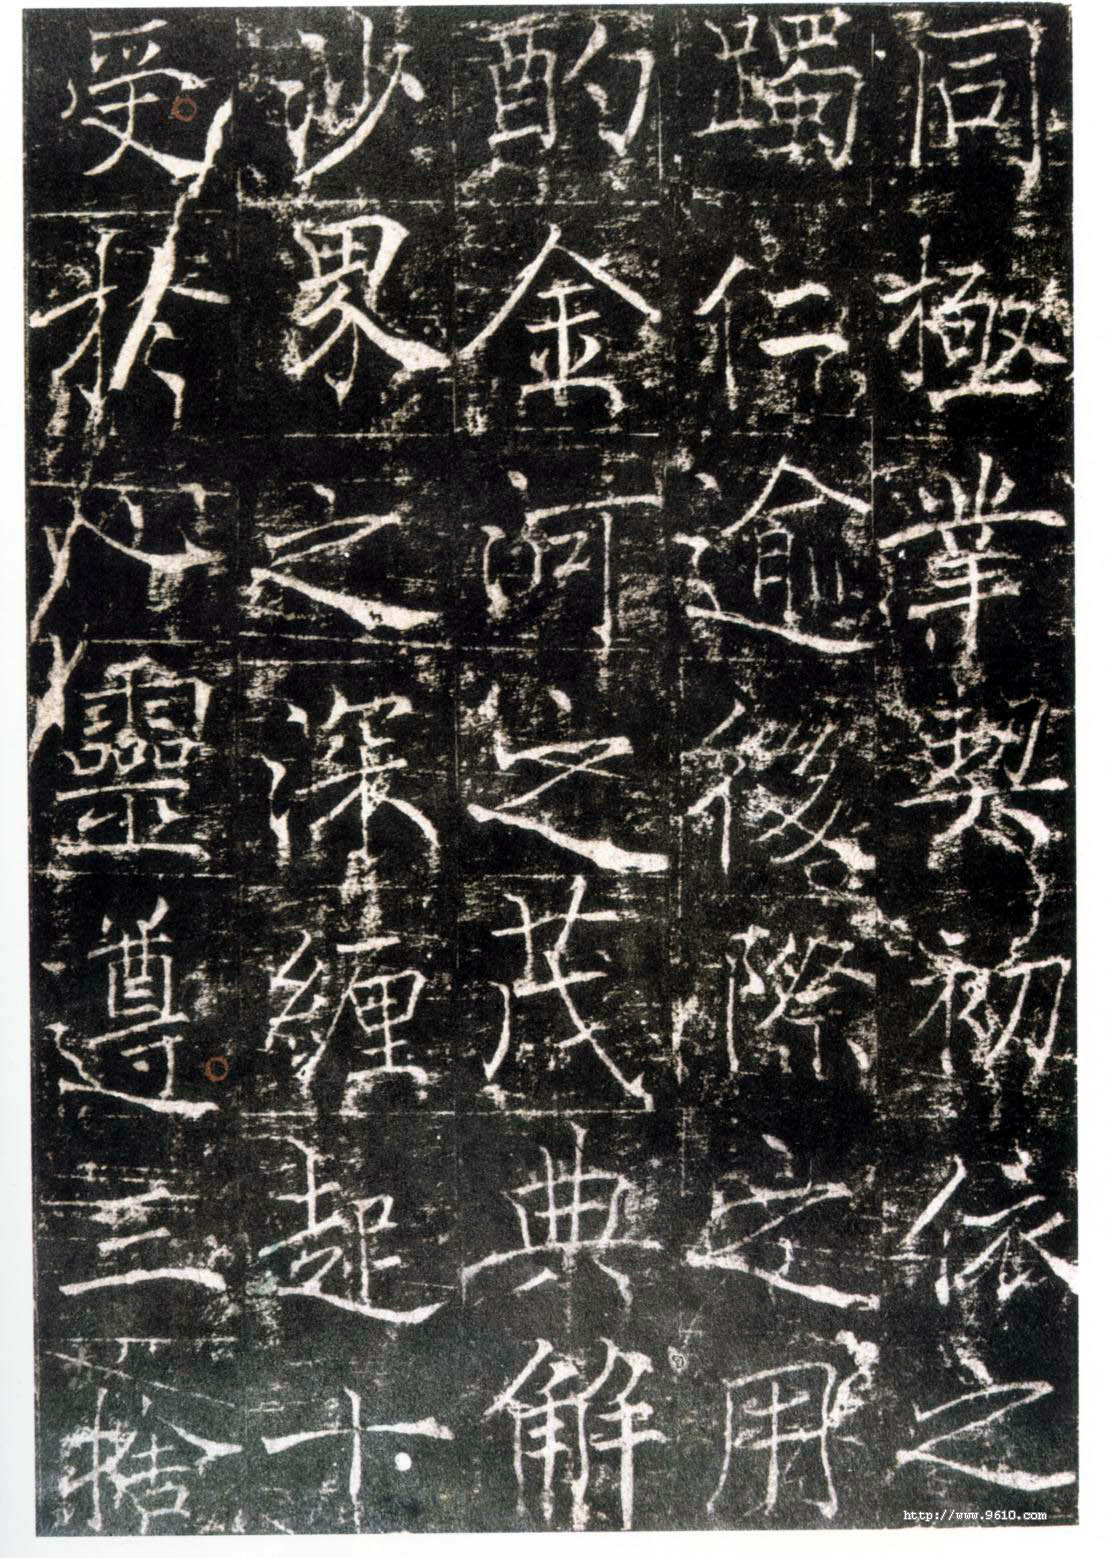 同極業契初依之
躅仁逾後際之用
酌金河之茂典解
沙界之深纏超十
受於靈遵三捨
http://www.9610.com